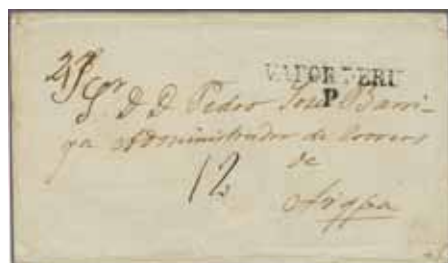 VAPOR PERU
P
Sr D. D. Pedro José Barri-
ga Administrador de Correos
12
de
Arqpa